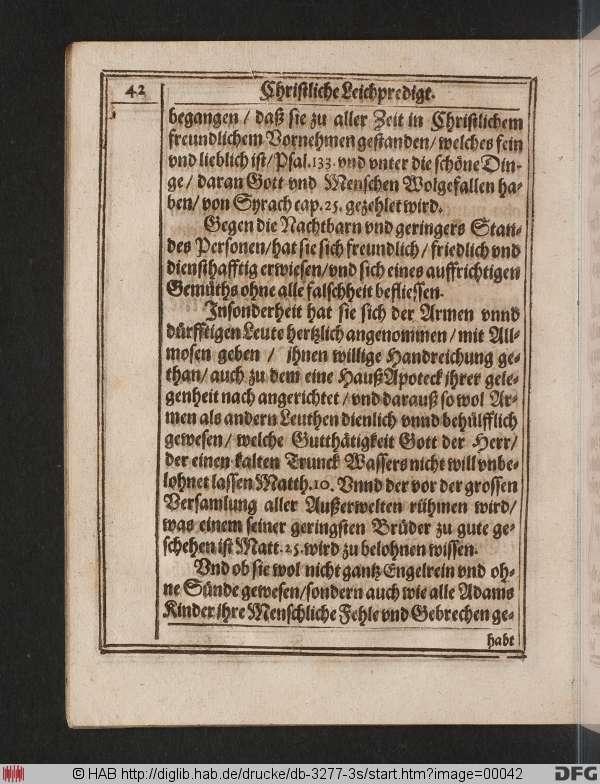 42
Christliche Leichpredigt.
begangen / daß sie zu aller Zeit in Christlichem
freundlichem Vornehmen gestanden / welches fein
vnd lieblich ist / Psal. 133. vnd vnter die schöne Din-
ge / daran Gott vnd Menschen Wolgefallen ha-
ben / von Syrach cap. 25. gezehlet wird.
Gegen die Nachtbarn vnd geringers Stan-
des Personen / hat sie sich freundlich / friedlich vnd
diensthafftig erwiesen / vnd sich eines auffrichtigen
Gemüths ohne alle falschheit befliessen.
Insonderheit hat sie sich der Armen vnnd
dürfftigen Leute hertzlich angenommen / mit All-
mosen geben / ihnen willige Handreichung ge-
than / auch zu dem eine HaußApoteck ihrer gele-
genheit nach angerichtet / vnd darauß so wol Ar-
men als andern Leuthen dienlich vnnd behülfflich
gewesen / welche Gutthätigkeit Gott der Herr /
der einen kalten Trunck Wassers nicht will vnbe-
lohnet lassen Matth. 10. Vnnd der vor der grossen
Versamlung aller Außerwelten rühmen wird /
was einem seiner geringsten Brüder zu gute ge-
schehen ist Matt. 25. wird zu belohnen wissen.
Vnd ob sie wol nicht gantz Engelrein vnd oh-
ne Sünde gewesen / sondern auch wie alle Adams
Kinder ihre Menschliche Fehle vnd Gebrechen ge-
habt
© HAB http://diglib.hab.de/drucke/db-3277-3s/start.htm?image=00042
DFG